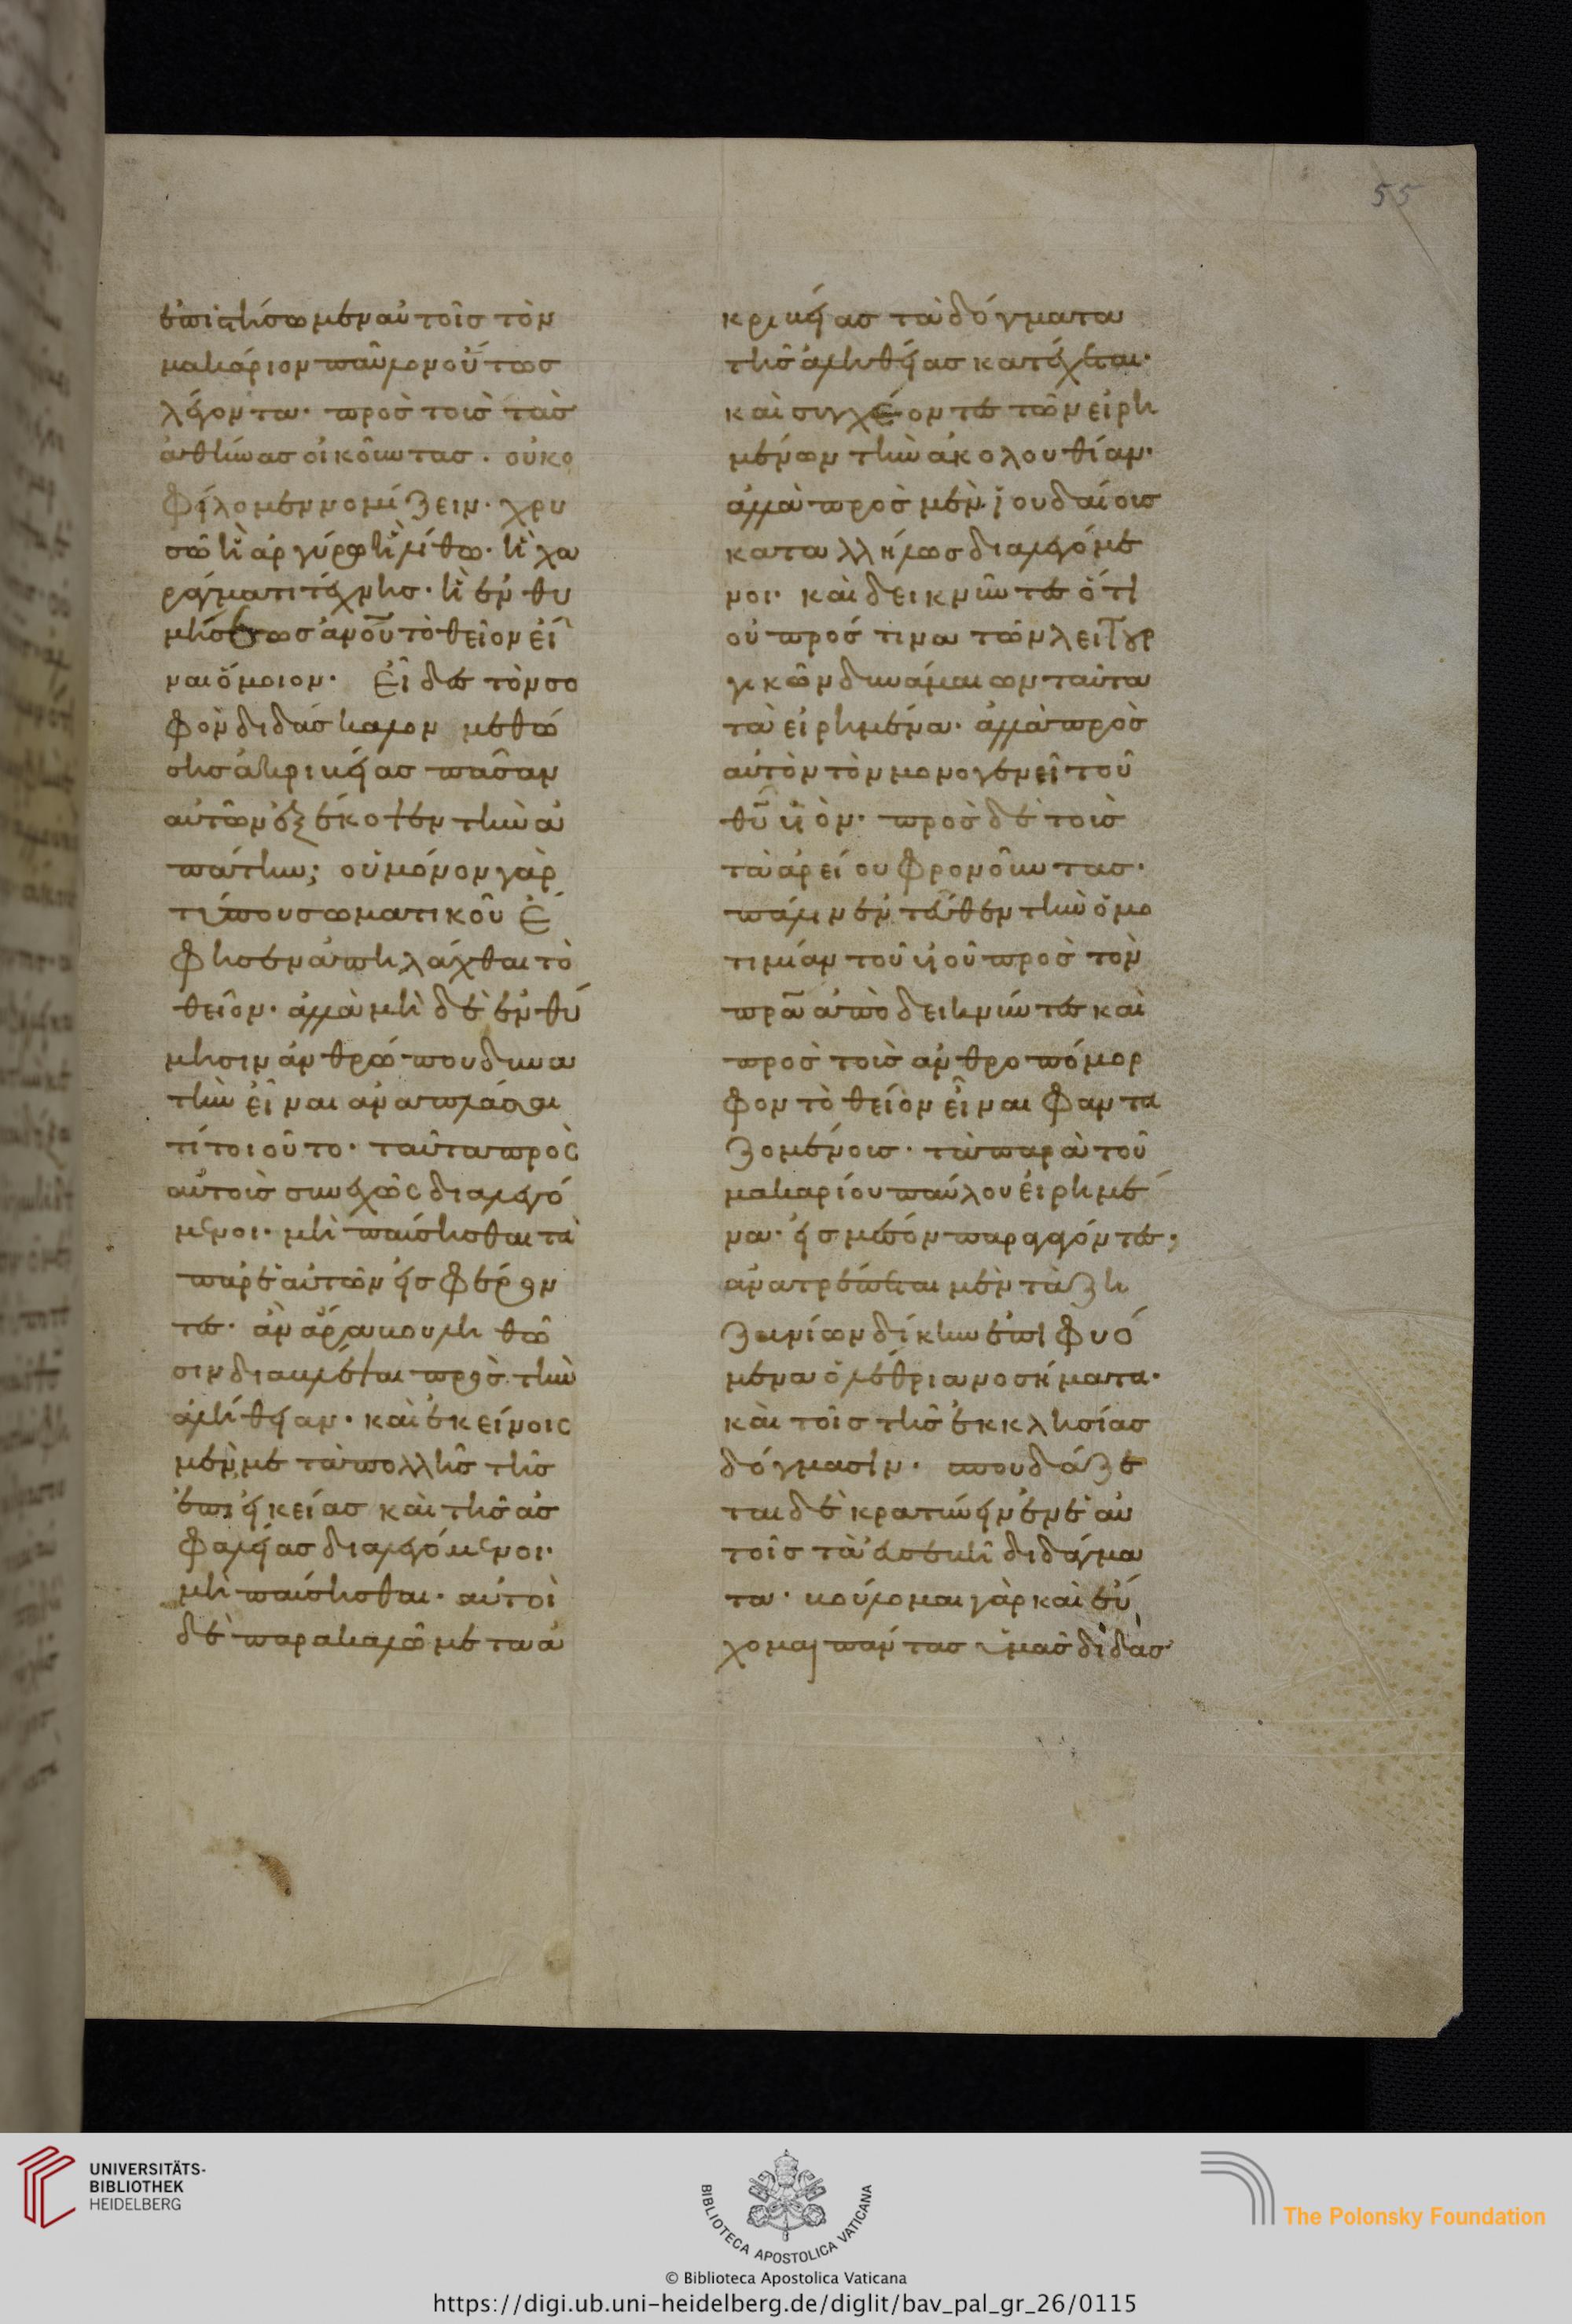 55
ἐπιστήσωμεν αὐτοῖς τὸν
μακάριον παῦλον οὕτως
λέγοντα· πρὸς τοὺς τὰς
ἀθήνας οἰκοῦντας· οὐκ ὀ
φείλομεν νομίζειν· χρυ
σῶ ἢ ἀργύρω ἢ λίθω· ἢ χα
ράγματι τέχνης· ἢ ἐνθυ
μήσεως ἀνοῦ τὸ θεῖον εἶ
ναι ὅμοιον· Εἶδες τὸν σο
φὸν διδάσκαλον μεθ' ὅ
σης ἀκριβείας πᾶσαν
αὐτῶν ἐξέκοψεν τὴν ἀ
πάτην; οὐ μόνον γὰρ
τύπου σωματικοῦ ἔ
φησεν ἀπηλλάχθαι τὸ
θεῖον· ἀλλὰ μὴ δὲ ἐνθύ
μησιν ἀνθρώπου δυνα
τὴν εἶναι ἀναπλάσαι
τί τοιοῦτο· ταῦτα πρὸς
αὐτοὺς συνεχῶς διαλεγό
μενοι· μὴ παύσησθαι τὰ
παρ' ἑαυτῶν εἰσφέρον
τες·
σιν διαβλέψαι πρὸς τὴν
ἀλήθειαν· καὶ ἐκείνοις
μὲν μετὰ πολλῆς τῆς
ἐπιεικείας καὶ τῆς ἀσ
φαλείας διαλεγόμενοι·
μὴ παύσησθαι· αὐτοὶ
δὲ παρακαλῶ μετὰ ἀ
κριβείας τὰ δόγματα
τῆς ἀληθείας κατέχεται·
καὶ συγχέοντες τῶν εἰρη
μένων τὴν ἀκολουθίαν·
ἀλλὰ πρὸς μὲν ἰουδαίοις
καταλλήλως διαλεγόμε
νοι· καὶ δεικνῦντες ὅτι
οὐ πρός τινα τῶν λειτουρ
γικῶν δυνάμαιων ταῦτα
τὰ εἰρημένα· ἀλλὰ πρὸς
αὐτὸν τὸν μονογενεῖ τοῦ
θῦ υἱόν· πρὸς δὲ τοὺς
τὰ ἀρείου φρονοῦντας·
πάλιν ἐντεῦθεν τὴν ὁμο
τιμίαν τοῦ υἱοῦ πρὸς τὸν
πρα ἀποδεικνύντες καὶ
πρὸς τοὺς ἀνθροπόμορ
φον τὸ θείον εἶναι φαντα
ζομένοις· τὰ παρὰ τοῦ
μακαρίου παύλου εἰρημέ
να· εἰς μέσον παραγαγόντες;
ἀνατρέπεται μὲν τὰ ζη
ζανίων δίκην ἐπιφυό
μενα ὀλέθρια νοσήματα·
καὶ τοῖς τῆς ἐκκλησίας
δόγμασιν· σπουδάζε
ται δὲ κρατύνειν ἐν ἑαυ
τοῖς τὰ εὐσεβῆ διδάγμα
τα· βούλομαι γὰρ καὶ εὔ
χομαι πάντας ὑμᾶς διδὰσ
UNIVERSITÄTS-
BIBLIOTHEK
HEIDELBERG
BIBLIOTECA APOSTOLICA VATICANA
© Biblioteca Apostolica Vaticana
The Polonsky Foundation
https://digi.ub.uni-heidelberg.de/diglit/bav_pal_gr_26/0115